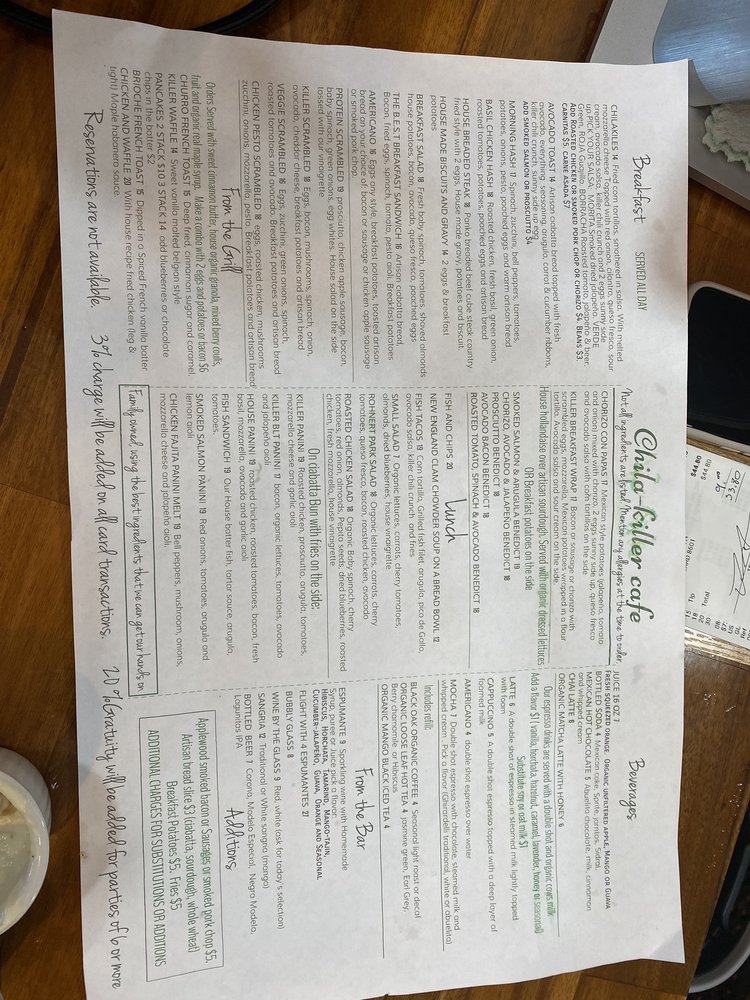 Chila-killer cafe
Not all ingredients are listed. Mention any allergies at the time to order.
Breakfast SERVED ALL DAY
CHILAXILES 14 Fried corn tortillas, smothered in salsa. With melted
mozzarella cheese Topped with red onion, cilantro, queso fresco, sour
cream, avocado salsa, killer chili crunch and 2 eggs sunny side
up.PICK YOUR SALSA: MORITA Smoked dried jalapeño, VERDE
Green, ROJA Guajillo, BORRACHA Roasted tomato, jalapeño & beer
ADD ROASTED CHICKEN OR SMOKED PORK CHOP OR CHORIZO $4, BEANS $3.
CARNITAS 5, CARNE ASADA $7
AVOCADO TOAST 14 Artisan ciabatta bread topped with fresh
avocado, everything seasoning, arugula, carrot & cucumber ribbons,
killer chili crunch, sunny side up egg
ADD SMOKED SALMON OR PROSCIUTTO $4
MORNING HASH 17 Spinach, zucchini, bell peppers, tomatoes,
potatoes, onions, pesto, poached eggs and warm artisan bread
BASIL CHICKEN HASH 18 Roasted chicken, fresh basil, green onion,
roasted tomatoes, potatoes, poached eggs and artisan bread
HOUSE BREADED STEAK 18 Panko breaded beef cube steak country
fried style with 2 eggs. House made gravy, potatoes and biscuit.
HOUSE MADE BISCUITS AND GRAVY 14 2 eggs & breakfast
potatoes
BREAKFAST SALAD 18 Fresh baby spinach, tomatoes, shaved almonds,
house potatoes, bacon, avocado, queso fresco, poached eggs
THE B.E.S.T BREAKFAST SANDWICH 16 Artisan ciabatta bread,
Bacon, fried eggs, spinach, tomato, pesto aioli. Breakfast potatoes
AMERICANO 16 Eggs any style, breakfast potatoes, toasted artisan
bread an your choice of: bacon or sausage or chicken apple sausage
or smoked pork chop
PROTEIN SCRAMBLED 19 prosciutto, chicken apple sausage, bacon,
baby spinach, green onions, egg whites. House salad on the side
tossed with our vinaigrette
KILLER SCRAMBLED 18 Eggs, bacon, mushrooms, spinach, onion,
avocado, cheddar cheese, breakfast potatoes and artisan bread
VEGGIE SCRAMBLED 16 Eggs, zucchini, green onions, spinach,
roasted tomatoes and avocado. Breakfast potatoes and artisan bread
CHICKEN PESTO SCRAMBLED 18 eggs, roasted chicken, mushrooms
zucchini, onions, mozzarella, pesto, Breakfast potatoes and artisan bread
From the Grill
Orders Served with sweet cinnamon butter, house organic granola, mixed berry coulis,
fruit and organic real maple syrup. Make a combo with 2 eggs and potatoes or bacon $6
CHURRO FRENCH TOAST 15 Deep fried, cinnamon sugar and caramel
KILLER WAFFLE 14 Sweet vanilla malted belgian style
PANCAKES 2 STACK $10 3 STACK 14 add blueberries or chocolate
chips in the batter $2
BRIOCHE FRENCH TOAST 15 Dipped in a Spiced French vanilla batter
CHICKEN AND WAFFLE 20 With house recipe fried chicken (leg &
tigh) Maple & Valentina sauce
CHORIZO CON PAPAS 17 Mexican style potatoes (jalapeño, tomato
and onion) mixed with chorizo, 2 eggs sunny side up, queso fresco
and avocado salsa with corn tortillas on the side
KILLER BREAKFAST WRAP 17 Bacon or sausage or chorizo with
scrambled eggs, mozzarella, Mexican potatoes wrapped in a flour
tortilla. Avocado salsa and sour cream on the side
House hollandaise over artisan sourdough. Served with organic dressed lettuces
OR Breakfast potatoes on the side
SMOKED SALMON & ARUGULA BENEDICT 19
CHORIZO, AVOCADO & JALAPENO BENEDICT 18
PROSCIUTTO BENEDICT 18
AVOCADO BACON BENEDICT 18
ROASTED TOMATO, SPINACH & AVOCADO BENEDICT 18
Lunch
FISH AND CHIPS 20
NEW ENGLAND CLAM CHOWDER SOUP ON A BREAD BOWL 12
FISH TACOS 19 Corn tortilla, Grilled fish filet, arugula, pico de Gallo,
avocado salsa, killer chili crunch, and fries
SMALL SALAD 7 Organic lettuces, carrots, cherry tomatoes,
almonds, dried blueberries, house vinaigrette
ROHNERT PARK SALAD 18 Organic lettuces, carrots, cherry
tomatoes, queso fresco, bacon, roasted chicken, avocado
ROASTED CHICKEN SALAD 18 Organic Baby spinach, cherry
tomatoes, red onion, almonds, Pepito seeds, dried blueberries, roasted
chicken, fresh mozzarella, house vinaigrette
On ciabatta Bun with fries on the side:
KILLER PANINI 19 Roasted chicken, prosciutto, arugula, tomatoes,
mozzarella cheese and garlic aioli
KILLER BLT PANINI 17 bacon, organic lettuces, tomatoes, avocado
and jalapeño aioli
HOUSE PANINI 19 Roasted chicken, roasted tomatoes, bacon, fresh
basil, mozzarella, avocado and garlic aioli
FISH SANDWICH 19 Our House batter fish, tartar sauce, arugula,
tomatoes,
SMOKED SALMON PANINI 19 Red onions, tomatoes, arugula and
lemon aioli
CHICKEN FAJITA PANINI MELT 19 Bell peppers, mushroom, onions,
mozzarella cheese and jalapeño aioli
Family owned, using the best ingredients that we can get our hands on
Beverages
JUICE 16 OZ 7
FRESH SQUEEZED ORANGE ORGANIC UNFILTERED APPLE, MANGO OR GUAVA
BOTTLED SODA 4 Mexican coke, Sprite, jarritos, Sidral,
MEXICAN HOT CHOCOLATE 5 Abuelita chocolate, milk, cinnamon
and whipped cream
CHAI LATTE 6
ORGANIC MATCHA LATTE WITH HONEY 6
Our espresso drinks are served with a double shot and organic cows milk
Add a flavor $1 (vanilla, horchata, hazelnut, caramel, lavender, honey or seasonal)
Substitute soy or oat milk $1
LATTE 6 A double shot of espresso in steamed milk lightly topped
with foam
CAPPUCCINO 5 A double shot espresso topped with a deep layer of
foamed milk
AMERICANO 4 double shot espresso over water
MOCHA 7 Double shot espresso with chocolate, steamed milk and
whipped cream. Pick a flavor (Ghirardelli traditional, white or abuelita)
Includes refill:
BLACK OAK ORGANIC COFFEE 4 Seasonal light roast or decaf
ORGANIC LOOSE LEAF HOT TEA 4 Jasmine green, Earl Grey,
Berry chamomile or Hibiscus
ORGANIC MANGO BLACK ICED TEA 4
From the Bar
ESPUMANTE 9 Sparkling wine with Homemade
Syrup, puree or Juice pick a flavor:
HIBISCUS, HORCHATA, TAMARIND, MANGO-TAJIN,
CUCUMBER-JALAPEÑO, GUAVA, ORANGE AND SEASONAL
FLIGHT WITH 4 ESPUMANTES 27
BUBBLY GLASS 8
WINE BY THE GLASS 9 Red, white (ask for today's selection)
SANGRIA 12 Traditional or White sangria (mango)
BOTTLED BEER 7 Corona, Modelo Especial, Negra Modelo,
Lagunitas IPA
Additions
Applewood smoked bacon or Sausages or smoked pork chop $5.
Artisan bread slice $3 (ciabatta, sourdough, whole wheat)
Breakfast Potatoes $5. Fries $5
ADDITIONAL CHARGES FOR SUBSTITUTIONS OR ADDITIONS
Reservations are not available. 3% charge will be added on all card transactions. 20% Gratuity will be added for parties of 6 or more